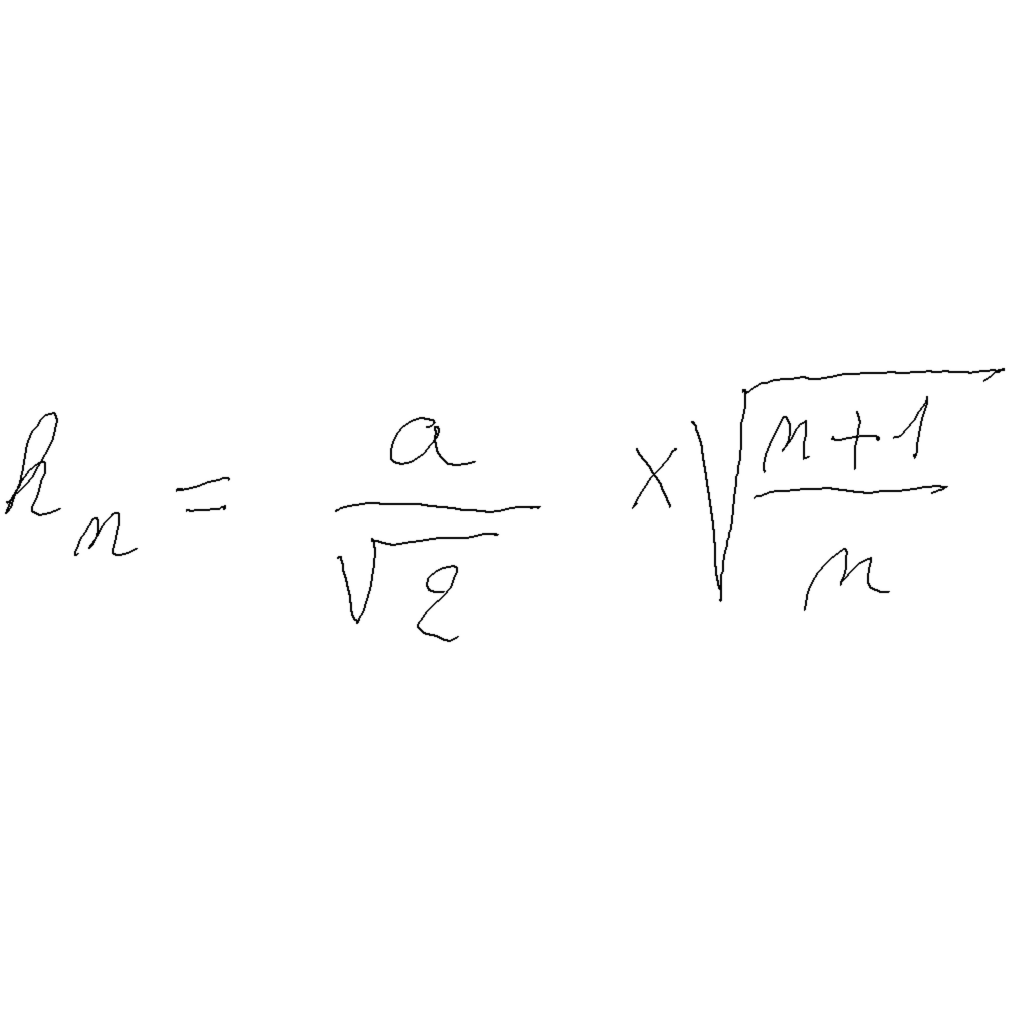 h_n = \frac{a}{\sqrt{2}} \times \sqrt{\frac{n+1}{n}}